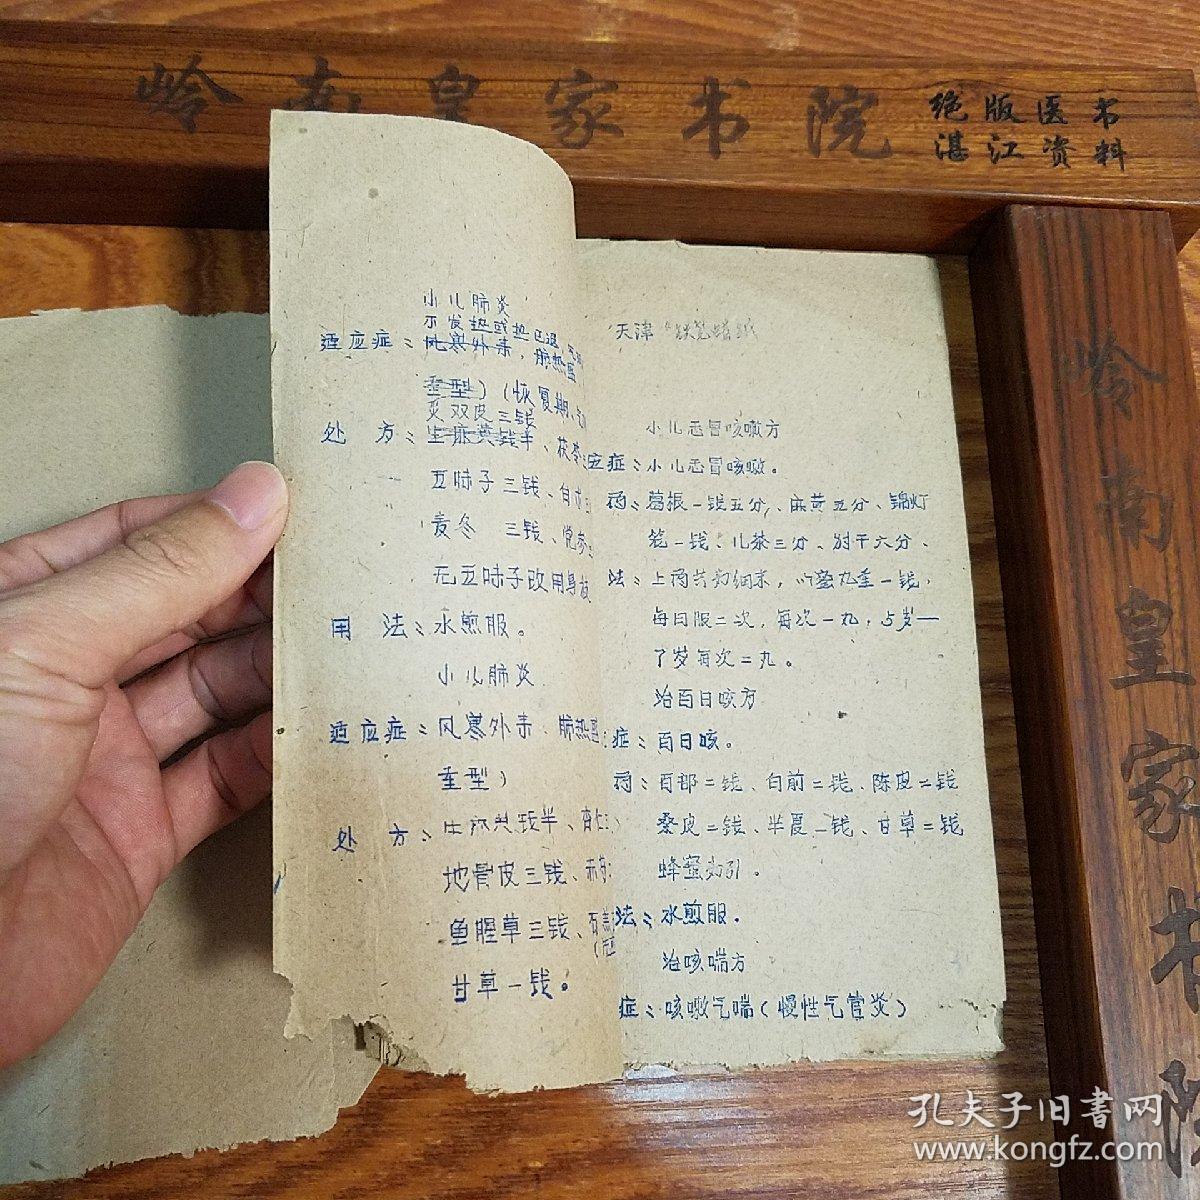 岭南皇家书院
绝版医书
湛江资料
小儿肺炎
不发热或热已退
适应症：风寒外束，肺热
重型）（恢复期
炙双皮三钱
处 方：生麻黄钱半、茯苓
五味子三钱、白
麦冬 三钱、党参
无五味子改用
用 法：水煎服。
小儿肺炎
适应症：风寒外束、肺热
重型）
处 方：生麻黄钱半、杏仁
地骨皮三钱、赤
鱼腥草三钱、石
甘草一钱。
天津
小儿感冒咳嗽方
应症：小儿感冒咳嗽。
药：葛根一钱五分、麻黄五分、锦灯
笼一钱、儿茶三分、射干六分、
法：上药共为细末，蜜丸重一钱，
每日服二次，每次一丸，5岁—
7岁每次二丸。
治百日咳方
症：百日咳。
药：百部二钱、白前二钱、陈皮二钱
桑皮二钱、半夏一钱、甘草二钱
蜂蜜为引。
法：水煎服.
治咳喘方
症：咳嗽气喘（慢性气管炎）
岭南皇家书院
孔夫子旧書网
www.kongfz.com